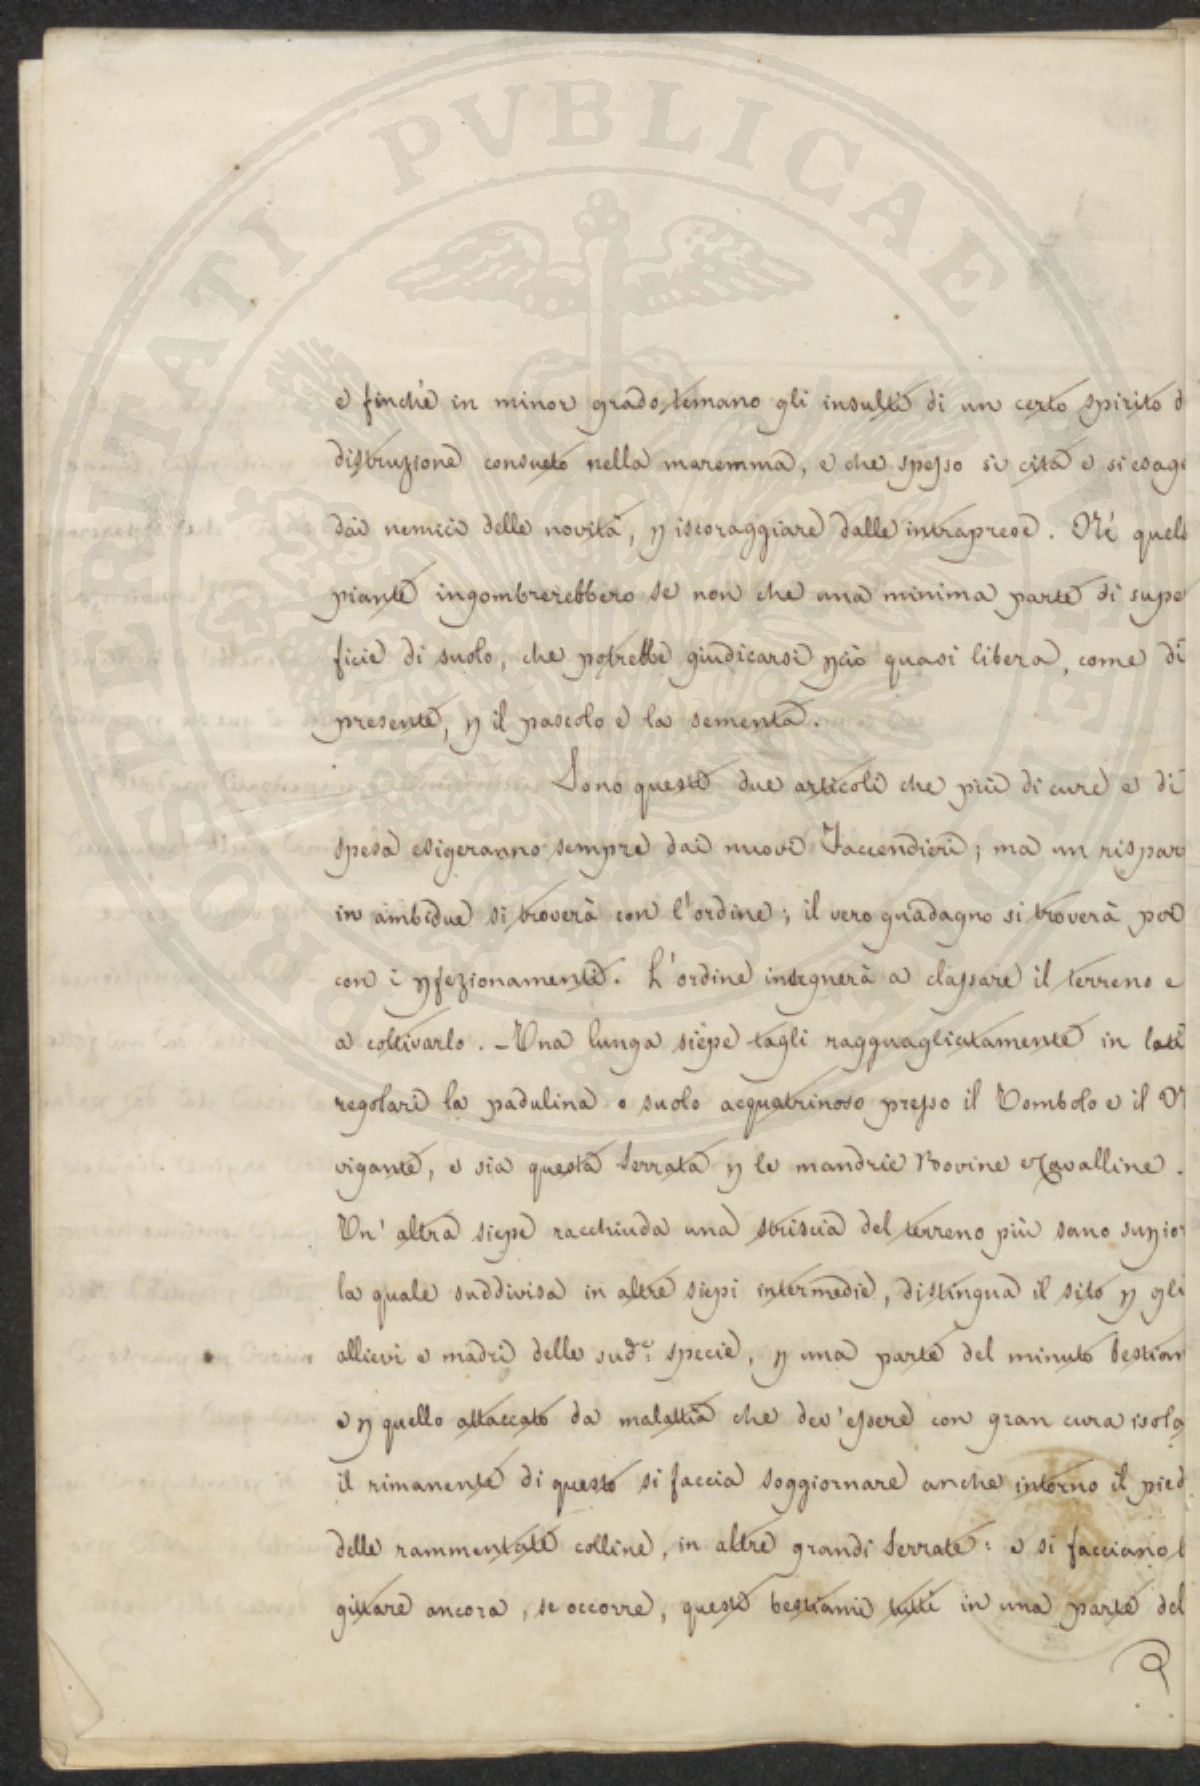 PROSPERITATI PVBLICAE
e finchè in minor grado temano gli insulti di un certo spirito d
distruzione consueto nella maremma, e che spesso si cita e si esage
dai nemici delle novità, p iscoraggiare dalle intraprese. Nè quelle
piante ingombrerebbero se non che una minima parte di supe
ficie di suolo, che potrebbe giudicarsi pciò quasi libera, come di
presente, p il pascolo e la sementa.
Sono questi due articoli che più di cure e di
spesa esigeranno sempre dai nuovi Faccendieri; ma un rispar
in ambidue si troverà con l'ordine; il vero guadagno si troverà poi
con i pfezionamenti. L'ordine insegnerà a classare il terreno e
a coltivarlo. - Una lunga siepe tagli ragguagliatamente in lati
regolari la padulina o suolo acquatrinoso presso il Tombolo e il N
vigante, e sia questa serrata p le mandrie Bovine e Cavalline.
Un' altra siepe racchiuda una striscia del terreno più sano supior
la quale suddivisa in altre siepi intermedie, distingua il sito p gli
allievi e madri delle sud.e specie, p una parte del minuto bestiam
e p quello attaccato da malattia che dev'essere con gran cura isola
il rimanente di questo si faccia soggiornare anche intorno il pied
delle rammentate colline, in altre grandi serrate: e si facciano
gittare ancora, se occorre, questi bestiami tutti in una parte del